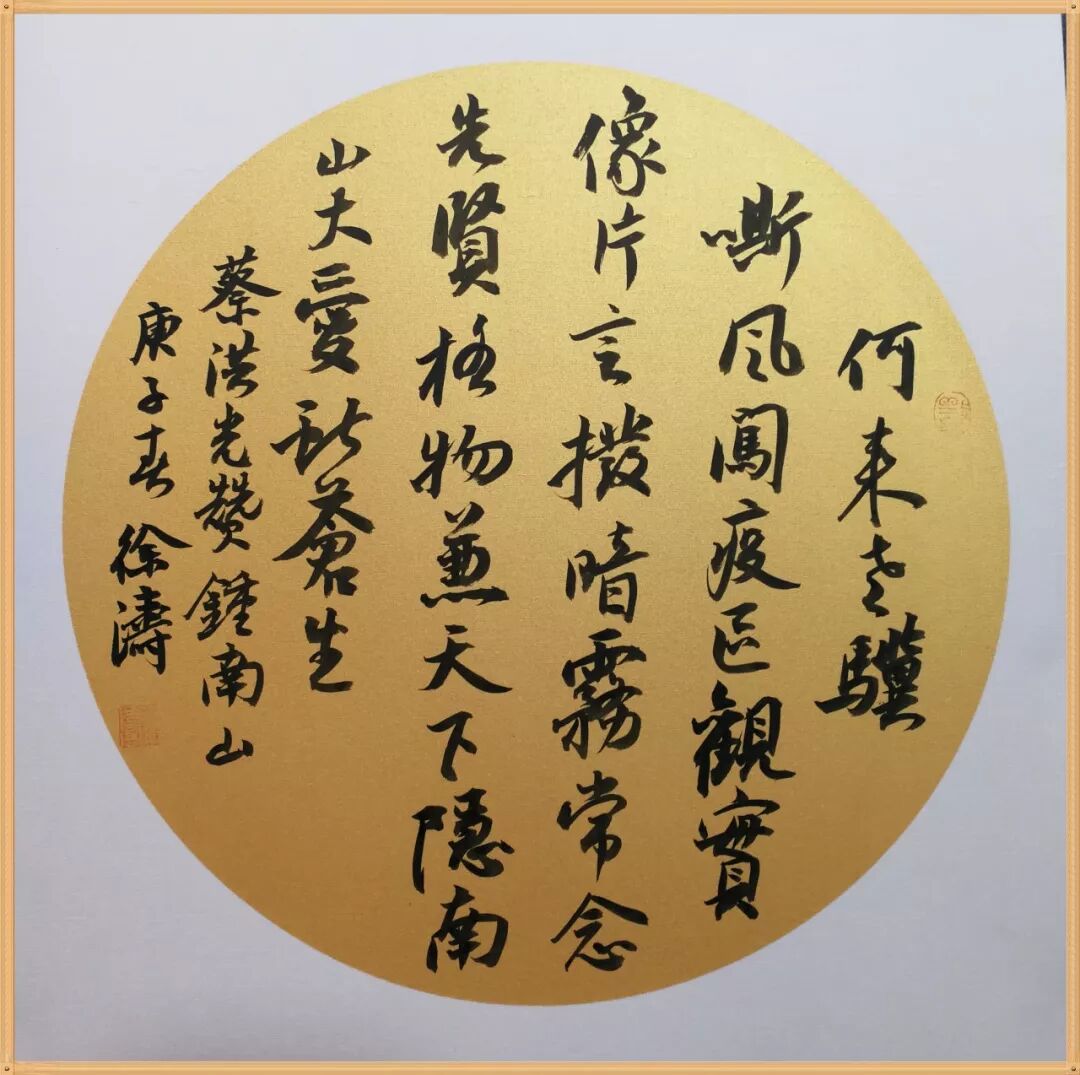 何来老驥
嘶风闖疫区觀實
像片言撥暗霧常念
先賢格物兼天下隱南
山大愛救蒼生
蔡洪光赞鍾南山
庚子春徐濤